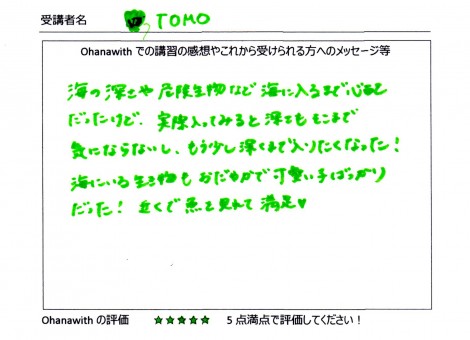 受講者名 TOMO
Ohanawith での講習の感想やこれから受けられる方へのメッセージ等
海の深さや危険生物など海に入るまで心配
だったけど、実際入ってみると深さもそこまで
気にならないし、もう少し深くまで入りたくなった！
海にいる生き物もおだやかで可愛い子ばっかり
だった！近くで魚を見れて満足♥
Ohanawith の評価 ★★★★★ 5 点満点で評価してください！